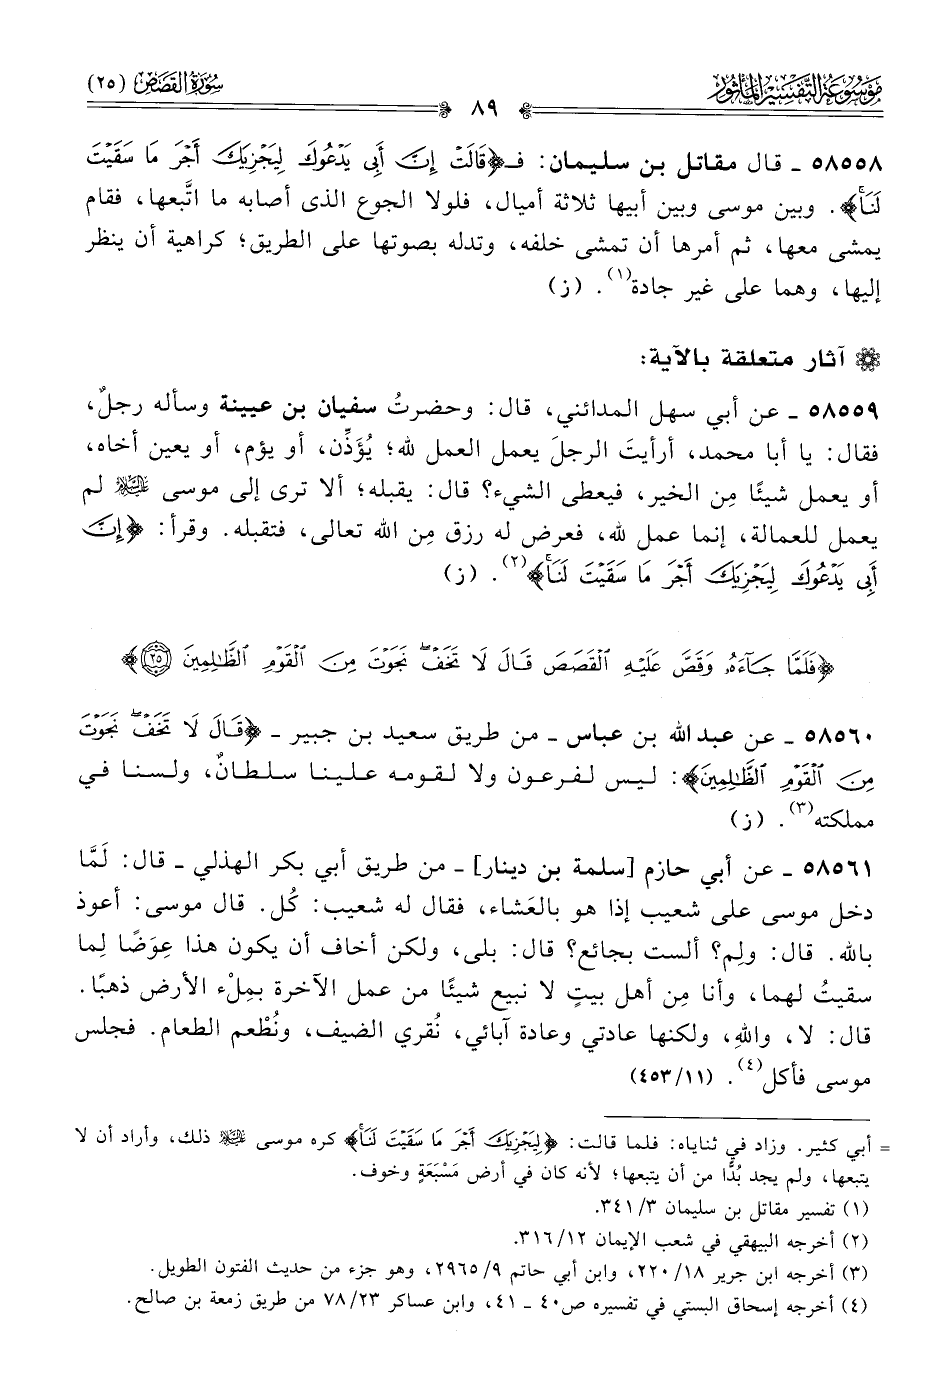 موسوعة التفسير المأثور
سورة القصص (٢٥)
٨٩
٥٨٥٥٨ ـ قال مقاتل بن سليمان: فـ﴿قَالَتْ إِنَّ أَبِى يَدْعُوكَ لِيَجْزِيَكَ أَجْرَ مَا سَقَيْتَ
لَنَا﴾. وبين موسى وبين أبيها ثلاثة أميال، فلولا الجوع الذى أصابه ما اتَّبعها، فقام
يمشى معها، ثم أمرها أن تمشى خلفه، وتدله بصوتها على الطريق؛ كراهية أن ينظر
إليها، وهما على غير جادة(١). (ز)
آثار متعلقة بالآية:
٥٨٥٥٩ ـ عن أبي سهل المدائني، قال: وحضرتُ سفيان بن عيينة وسأله رجلٌ،
فقال: يا أبا محمد، أرأيتَ الرجلَ يعمل العمل لله؛ يُؤَذِّن، أو يؤم، أو يعين أخاه،
أو يعمل شيئًا مِن الخير، فيعطى الشيء؟ قال: يقبله؛ ألا ترى إلى موسى عليه السلام لم
يعمل للعمالة، إنما عمل لله، فعرض له رزق مِن الله تعالى، فتقبله. وقرأ: ﴿إِنَّ
أَبِى يَدْعُوكَ لِيَجْزِيَكَ أَجْرَ مَا سَقَيْتَ لَنَا﴾(٢). (ز)
﴿فَلَمَّا جَآءَهُۥ وَقَصَّ عَلَيْهِ ٱلْقَصَصَ قَالَ لَا تَخَفْ ۖ نَجَوْتَ مِنَ ٱلْقَوْمِ ٱلظَّٰلِمِينَ ٢٥﴾
٥٨٥٦٠ ـ عن عبد الله بن عباس ـ من طريق سعيد بن جبير ـ ﴿قَالَ لَا تَخَفْ ۖ نَجَوْتَ
مِنَ ٱلْقَوْمِ ٱلظَّٰلِمِينَ﴾: ليس لفرعون ولا لقومه علينا سلطانٌ، ولسنا في
مملكته(٣). (ز)
٥٨٥٦١ ـ عن أبي حازم [سلمة بن دينار] ـ من طريق أبي بكر الهذلي ـ قال: لَمَّا
دخل موسى على شعيب إذا هو بالعَشاء، فقال له شعيب: كُل. قال موسى: أعوذ
بالله. قال: ولِم؟ ألست بجائع؟ قال: بلى، ولكن أخاف أن يكون هذا عِوَضًا لِما
سقيتُ لهما، وأنا مِن أهل بيتٍ لا نبيع شيئًا من عمل الآخرة بمِلْء الأرض ذهبًا.
قال: لا، واللهِ، ولكنها عادتي وعادة آبائي، نُقري الضيف، ونُطْعم الطعام. فجلس
موسى فأكل(٤). (١١/ ٤٥٣)
= أبي كثير. وزاد في ثناياه: فلما قالت: ﴿لِيَجْزِيَكَ أَجْرَ مَا سَقَيْتَ لَنَا﴾ كره موسى عليه السلام ذلك، وأراد أن لا
يتبعها، ولم يجد بُدًّا من أن يتبعها؛ لأنه كان في أرض مَسْبَعَةٍ وخوف.
(١) تفسير مقاتل بن سليمان ٣/ ٣٤١.
(٢) أخرجه البيهقي في شعب الإيمان ١٢/ ٣١٦.
(٣) أخرجه ابن جرير ١٨/ ٢٢٠، وابن أبي حاتم ٩/ ٢٩٦٥، وهو جزء من حديث الفتون الطويل.
(٤) أخرجه إسحاق البستي في تفسيره ص٤٠ ـ ٤١، وابن عساكر ٢٣/ ٧٨ من طريق زمعة بن صالح.